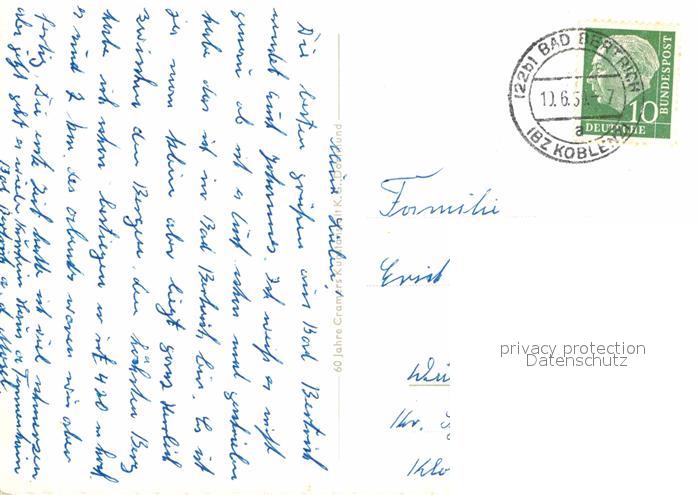 Meine Lieben!
Die besten Grüßen aus Bad Bertrich
sendet Euch Johannes. Ich weiß es nicht
genau ob ist es Euch schon mal geschrieben
habe das ich in Bad Bertrich bin. Es ist
zwar klein aber liegt ganz herrlich
zwischen den Bergen. den höchsten Berg
habe ich schon bestiegen er ist 420 m hoch
es sind 7 km. des abends waren wir aber
fertig. Die erste Zeit hatte ich viel schmerzen.
aber jetzt geht es wieder
Bad Bertrich a. d. Mosel.
60 Jahre Cramers Kunstanstalt K.G., Dortmund
(22b) BAD BERTRICH
10.6.5 - 7
a
(BZ KOBLENZ)
10
DEUTSCHE
BUNDESPOST
Familie
Erich
Kr.
Klo
privacy protection
Datenschutz